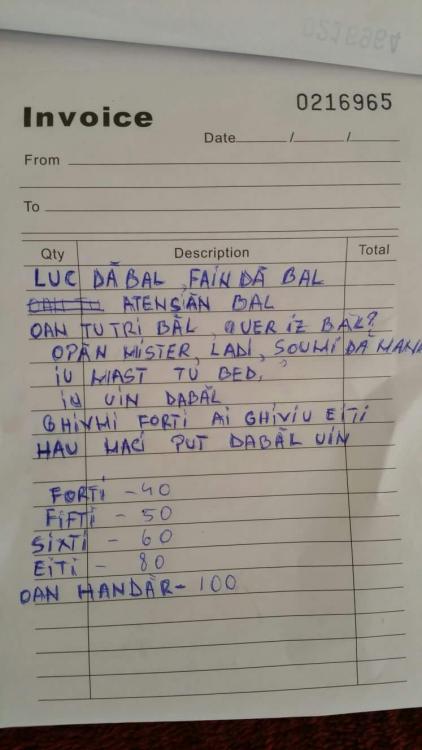 0216964
Invoice
0216965
Date / /
From
To
Qty Description Total
LUC DĂ BAL, FAIN DĂ BAL
ATENȘĂN BAL
OAN TU TRI BĂL, QUER IZ BAL?
OPĂN MISTER, LADI, SOUMI DĂ MANI
IU MAST TU BED,
IU UIN DABĂL
GHIVMI FORTI AI GHIVIU EITI
HAU MACI PUT DABĂL UIN
FORTI - 40
FIFTI - 50
SIXTI - 60
EITI - 80
OAN HANDĂR - 100